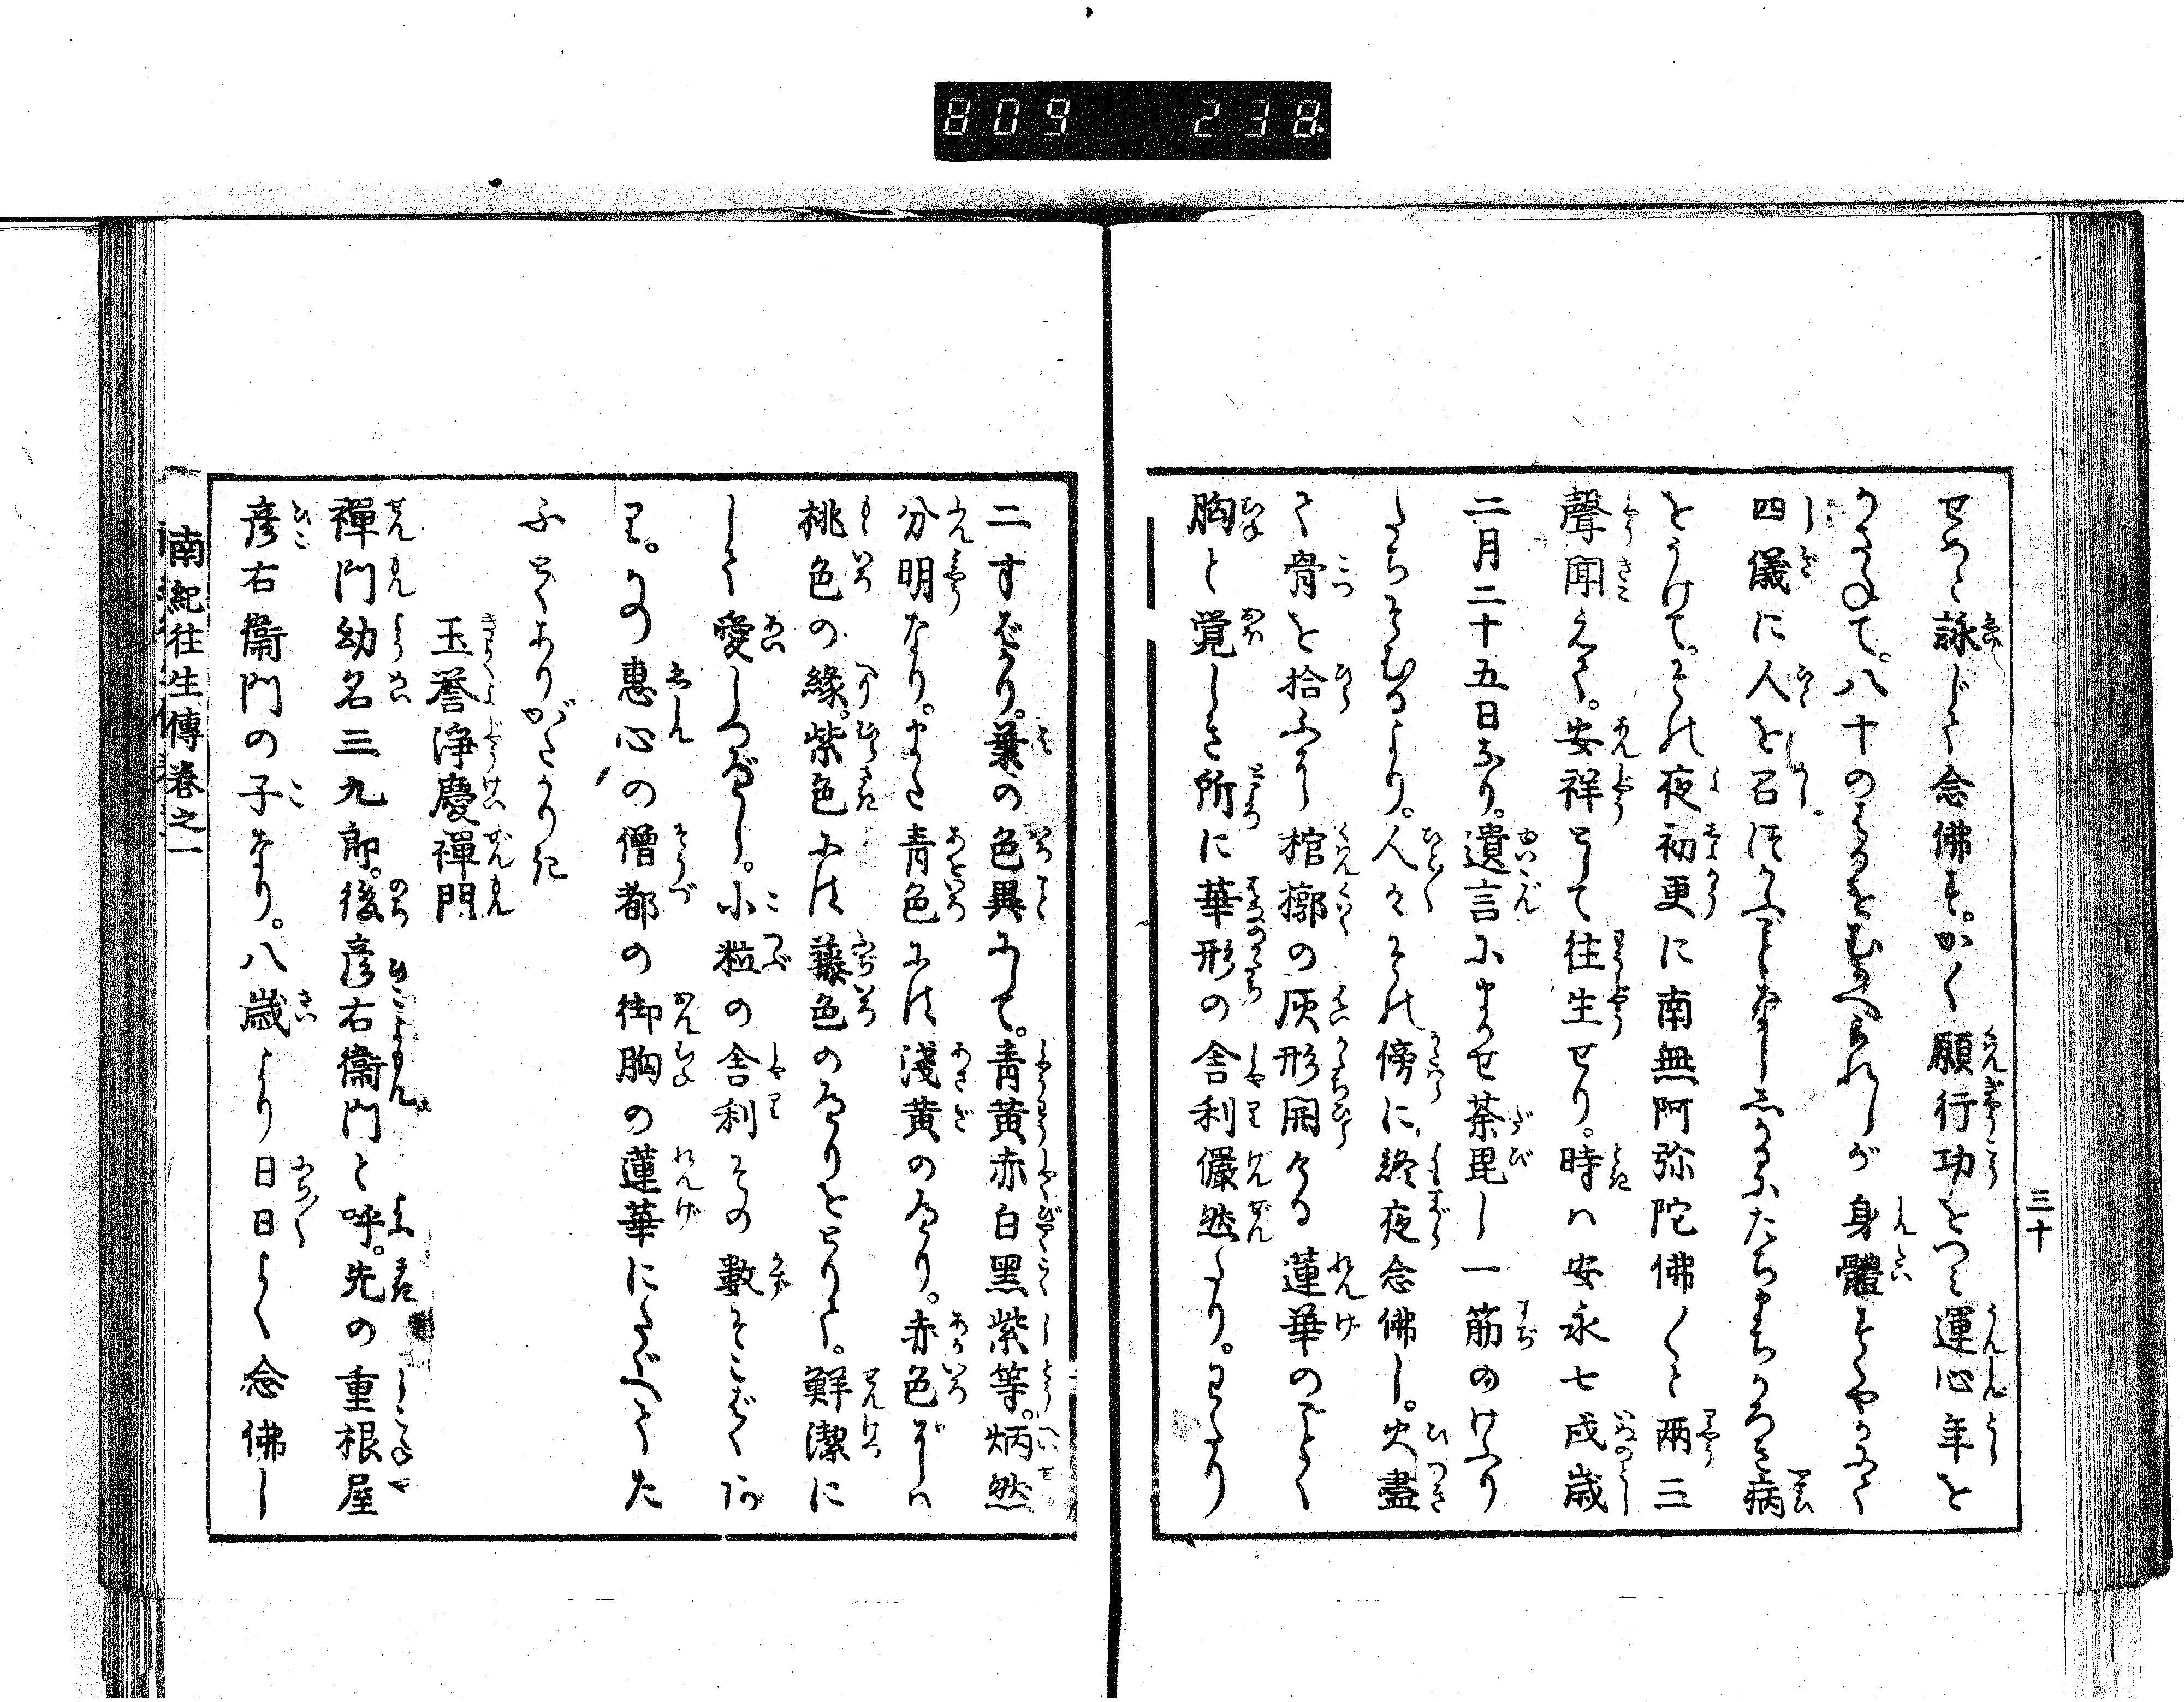 809 238
三十
せめて詠じて念佛す。かく願行功をつミ運心年を
かさねて。八十のはるをむかへられしが身體すくやかにて
四儀に人を召つかふことなししかふにたちまちかろき病
をうけて。それ夜初更に南無阿弥陀佛〳〵と両三
聲聞えて。安祥として往生せり。時ハ安永七戌歳
二月二十五日なり。遺言にまかせ荼毘し一筋のけふり
たちそむるより。人々それ傍に終夜念佛し。火盡
て骨を拾ふに棺槨の灰形開ける蓮華のごとく
胸と覚しき所に華形の舎利儼然たり。わたり
二寸ばかり。葉の色異にして。青黄赤白黑紫等。炳然
分明なり。また青色にハ淺黄のへり。赤色ぞしハ
桃色の縁。紫色にハ藤色のへりをとりて。鮮潔に
して愛しつべし。小粒の舎利その數そこばくあ
り。かの惠心の僧都の御胸の蓮華にたぐへうた
ふとくありがたかりき
玉誉浄慶禪門
禪門幼名三九郎。後彦右衞門と呼。先の重根屋
彦右衞門の子なり。八歳より日日よく念佛し
南紀往生傳卷之一